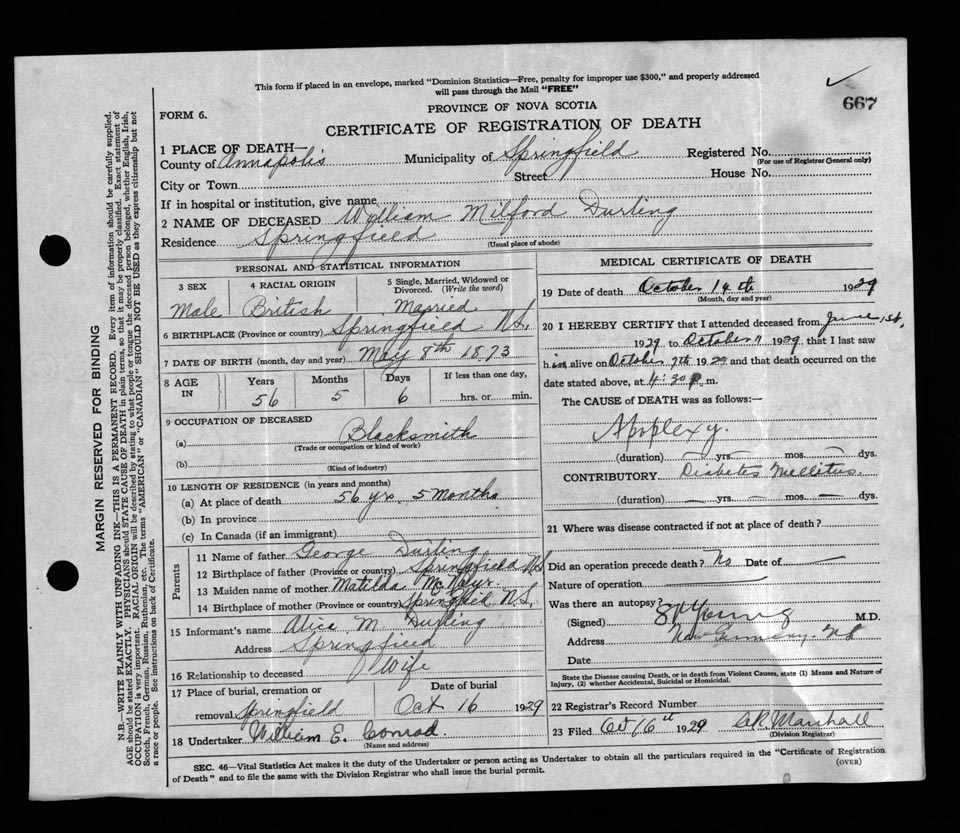 This form if placed in an envelope, marked "Dominion Statistics—Free, penalty for improper use $300," and properly addressed
will pass through the Mail "FREE"
667
FORM 6.
PROVINCE OF NOVA SCOTIA
CERTIFICATE OF REGISTRATION OF DEATH
1 PLACE OF DEATH—
County of Annapolis Municipality of Springfield Registered No.
(For use of Registrar General only)
City or Town Street House No.
If in hospital or institution, give name
2 NAME OF DECEASED William Milford Durling
Residence Springfield
(Usual place of abode)
PERSONAL AND STATISTICAL INFORMATION
3 SEX 4 RACIAL ORIGIN 5 Single, Married, Widowed or
Divorced. (Write the word)
Male British Married
6 BIRTHPLACE (Province or country) Springfield N.S.
7 DATE OF BIRTH (month, day and year) May 8th 1873
8 AGE IN Years Months Days If less than one day,
56 5 6 hrs. or min.
9 OCCUPATION OF DECEASED
(a) Blacksmith
(Trade or occupation or kind of work)
(b)
(Kind of industry)
10 LENGTH OF RESIDENCE (in years and months)
(a) At place of death 56 yrs. 5 months
(b) In province
(c) In Canada (if an immigrant)
Parents
11 Name of father George Durling
12 Birthplace of father (Province or country) Springfield N.S
13 Maiden name of mother Matilda
14 Birthplace of mother (Province or country) N.S.
15 Informant's name Alice M. Durling
Address Springfield
16 Relationship to deceased Wife
17 Place of burial, cremation or Date of burial
removal Springfield Oct 16 1929
18 Undertaker William E. Conrad.
(Name and address)
MEDICAL CERTIFICATE OF DEATH
19 Date of death October 14th 1929
(Month, day and year)
20 I HEREBY CERTIFY that I attended deceased from June 1st,
1929 to October 1929, that I last saw
him alive on October 7th 1929 and that death occurred on the
date stated above, at 4:30 p.m.
The CAUSE of DEATH was as follows:—
Apoplexy.
(duration) — yrs. — mos. — dys.
CONTRIBUTORY Diabetes Mellitus.
(duration) — yrs. — mos. — dys.
21 Where was disease contracted if not at place of death?
Did an operation precede death? No Date of —
Nature of operation —
Was there an autopsy?
(Signed) Young M.D.
Address New Germany, N.S.
Date
State the Disease causing Death, or in death from Violent Causes, state (1) Means and Nature of
Injury, (2) whether Accidental, Suicidal or Homicidal.
22 Registrar's Record Number
23 Filed Oct 16th 1929 Marshall
(Division Registrar)
SEC. 46—Vital Statistics Act makes it the duty of the Undertaker or person acting as Undertaker to obtain all the particulars required in the "Certificate of Registration
of Death" and to file the same with the Division Registrar who shall issue the burial permit.
(OVER)
MARGIN RESERVED FOR BINDING
N.B.—WRITE PLAINLY WITH UNFADING INK—THIS IS A PERMANENT RECORD. Every item of information should be carefully supplied.
AGE should be stated EXACTLY. PHYSICIANS should STATE CAUSE OF DEATH in plain terms, so that it may be properly classified. Exact statement of
OCCUPATION is very important. RACIAL ORIGIN will be described by stating to what people or tongue the deceased person belonged, whether English, Irish,
Scotch, French, German, Russian, Ruthenian, etc. The terms "AMERICAN" or "CANADIAN" SHOULD NOT BE USED as they express citizenship but not
a race or people. See instructions on back of Certificate.